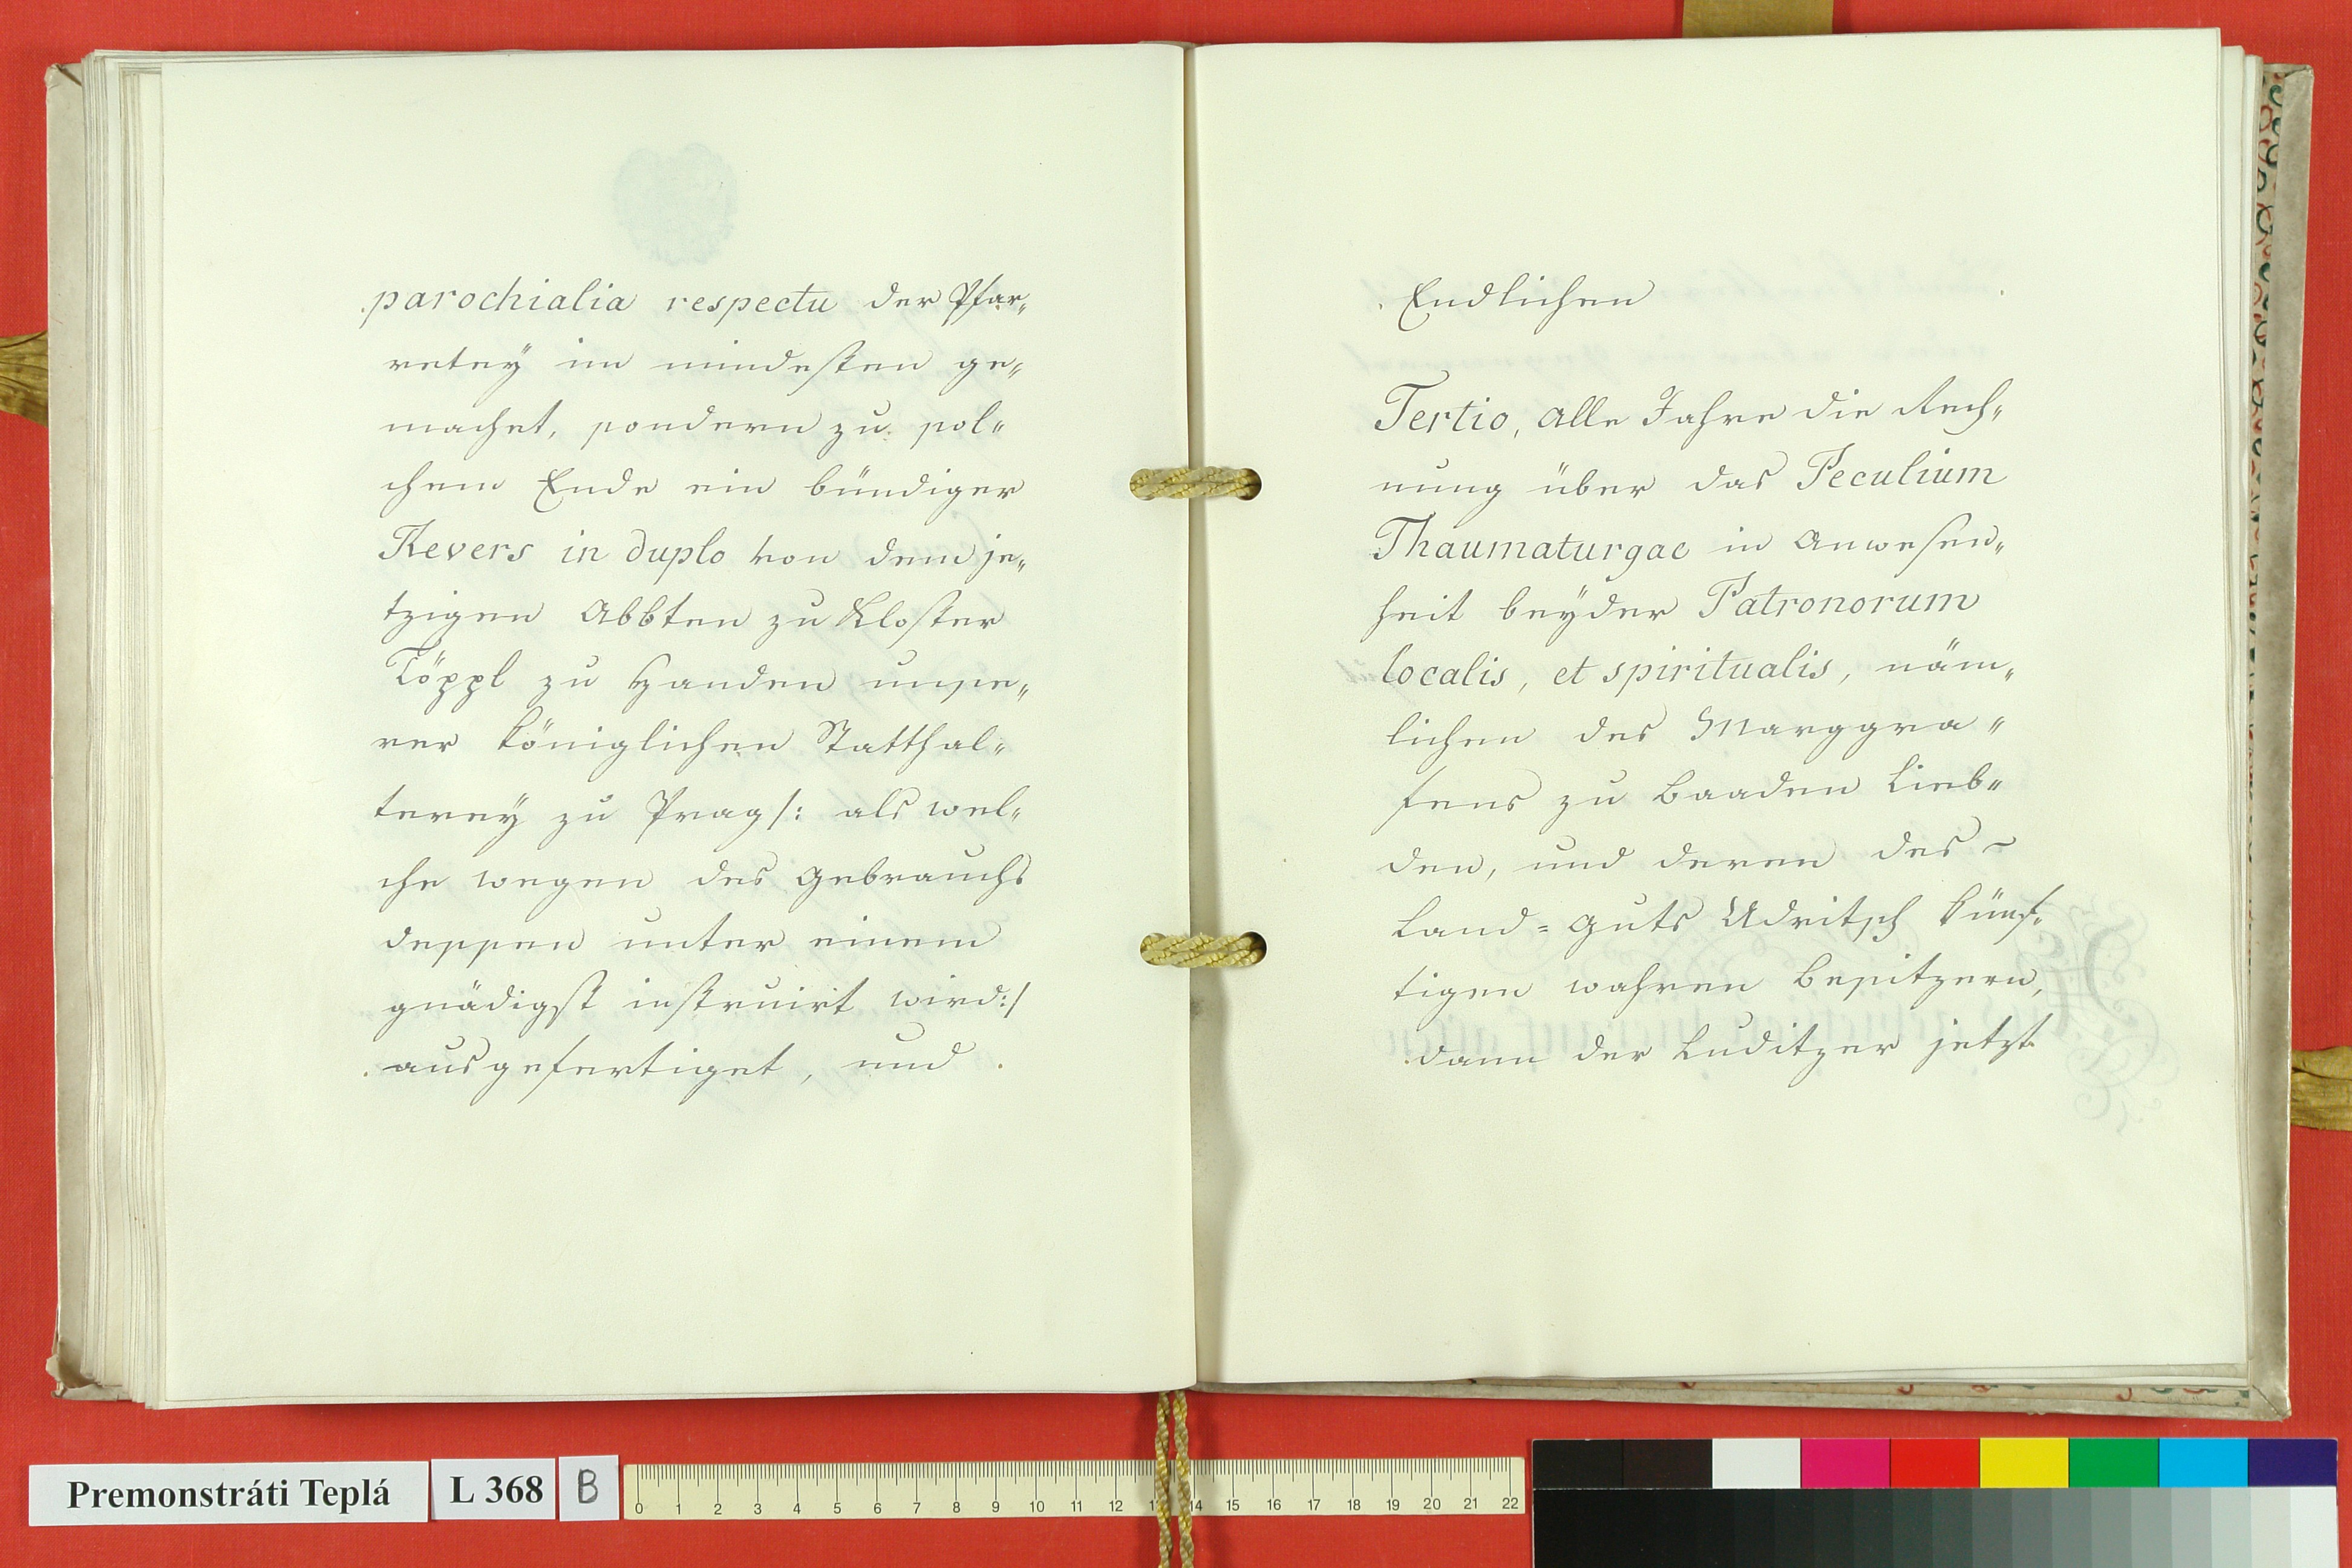 parochialia respectu der Pfar„
retey im mindesten ge„
machet, sondern zu sol„
chem Ende ein bündiger
Revers in duplo von dem je„
tzigen Abbten zu Kloster
Töppl zu Handen unse„
rer königlichen Statthal„
terey zu Prag /: als wel„
che wegen des Gebrauchs
dessen unter einem
gnädigst instruirt wird :/
ausgefertiget, und
Endlichen
Tertio, alle Jahre die Rech„
nung über das Peculium
Thaumaturgae in Anwesen„
heit beyder Patronorum
localis, et spiritualis, näm„
lichen des Marggra„
fens zu Baaden Lieb„
den, und deren des ~
Land=Guts Udritsch künf„
tigen wahren Besitzern,
dann der Luditzer jetzt
Premonstráti Teplá L 368 B
0 1 2 3 4 5 6 7 8 9 10 11 12 13 14 15 16 17 18 19 20 21 22